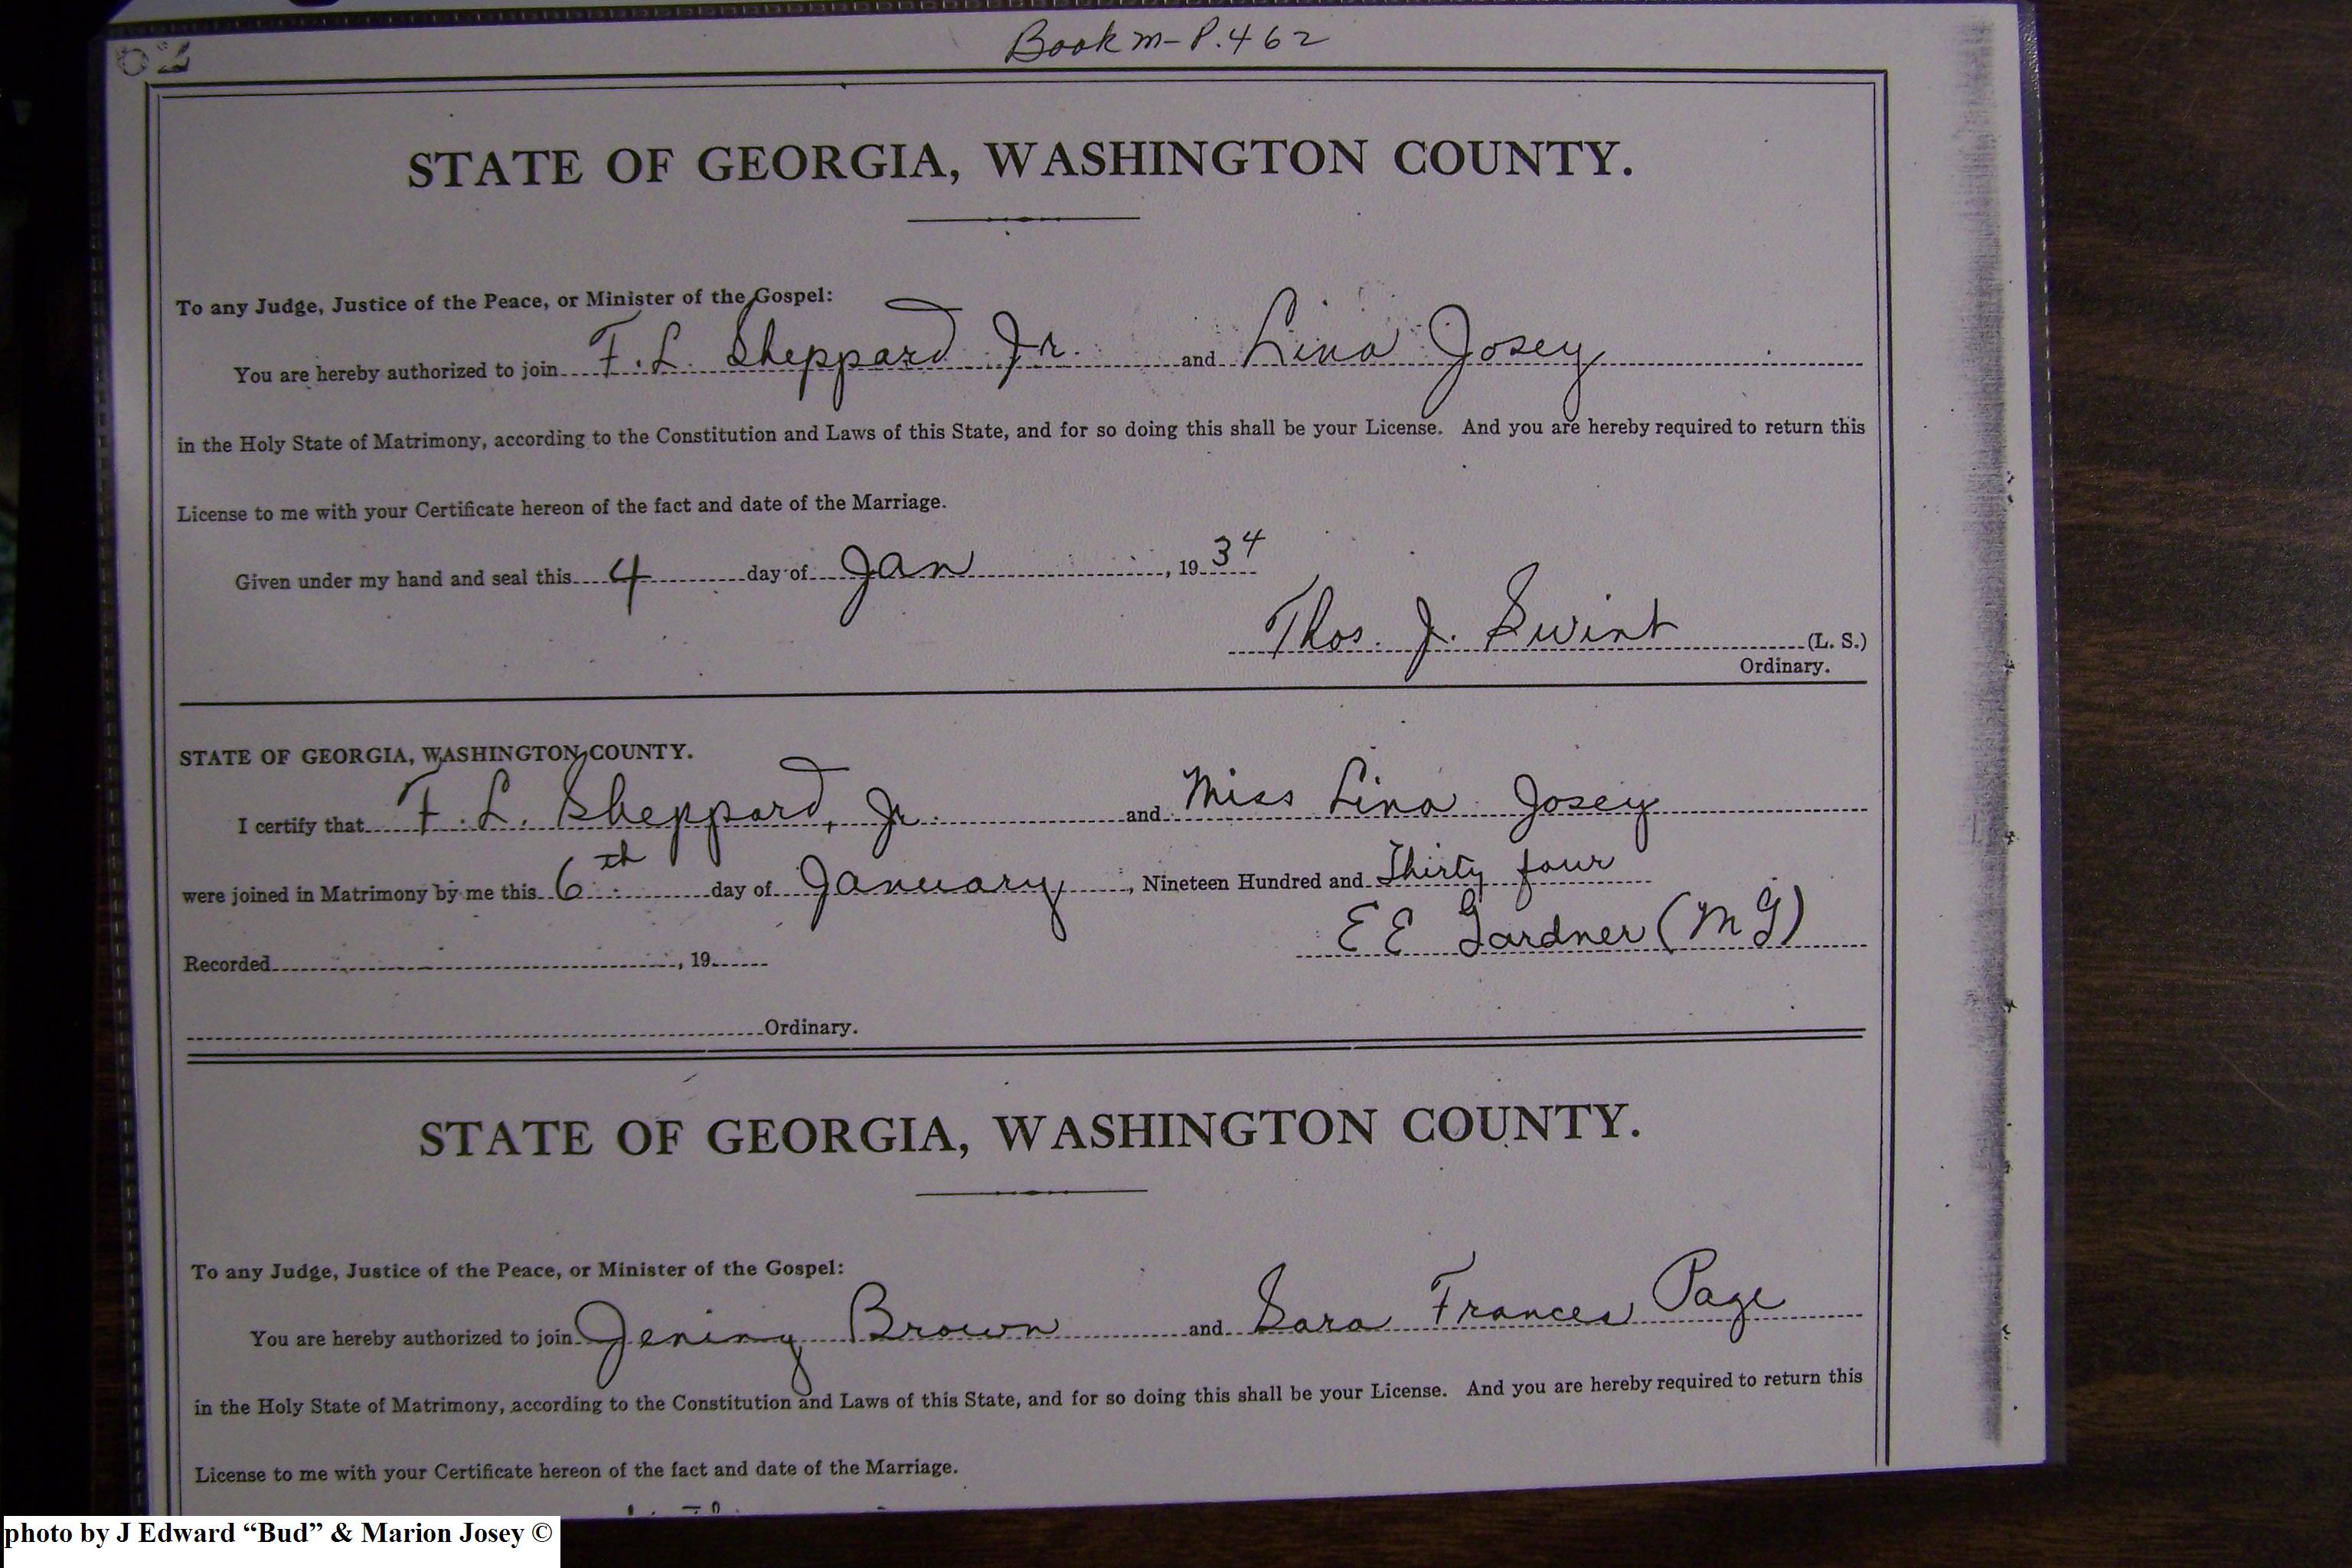 Book M - P. 462
62
STATE OF GEORGIA, WASHINGTON COUNTY.
To any Judge, Justice of the Peace, or Minister of the Gospel:
You are hereby authorized to join F. L. Sheppard Jr. and Lina Josey
in the Holy State of Matrimony, according to the Constitution and Laws of this State, and for so doing this shall be your License. And you are hereby required to return this
License to me with your Certificate hereon of the fact and date of the Marriage.
Given under my hand and seal this 4 day of Jan, 1934
Thos. J. Swint (L. S.)
Ordinary.
STATE OF GEORGIA, WASHINGTON COUNTY.
I certify that F. L. Sheppard, Jr. and Miss Lina Josey
were joined in Matrimony by me this 6th day of January, Nineteen Hundred and Thirty four
E E Gardner (M G)
Recorded, 19
Ordinary.
STATE OF GEORGIA, WASHINGTON COUNTY.
To any Judge, Justice of the Peace, or Minister of the Gospel:
You are hereby authorized to join Jeniny Brown and Sara Frances Page
in the Holy State of Matrimony, according to the Constitution and Laws of this State, and for so doing this shall be your License. And you are hereby required to return this
License to me with your Certificate hereon of the fact and date of the Marriage.
photo by J Edward “Bud” & Marion Josey ©